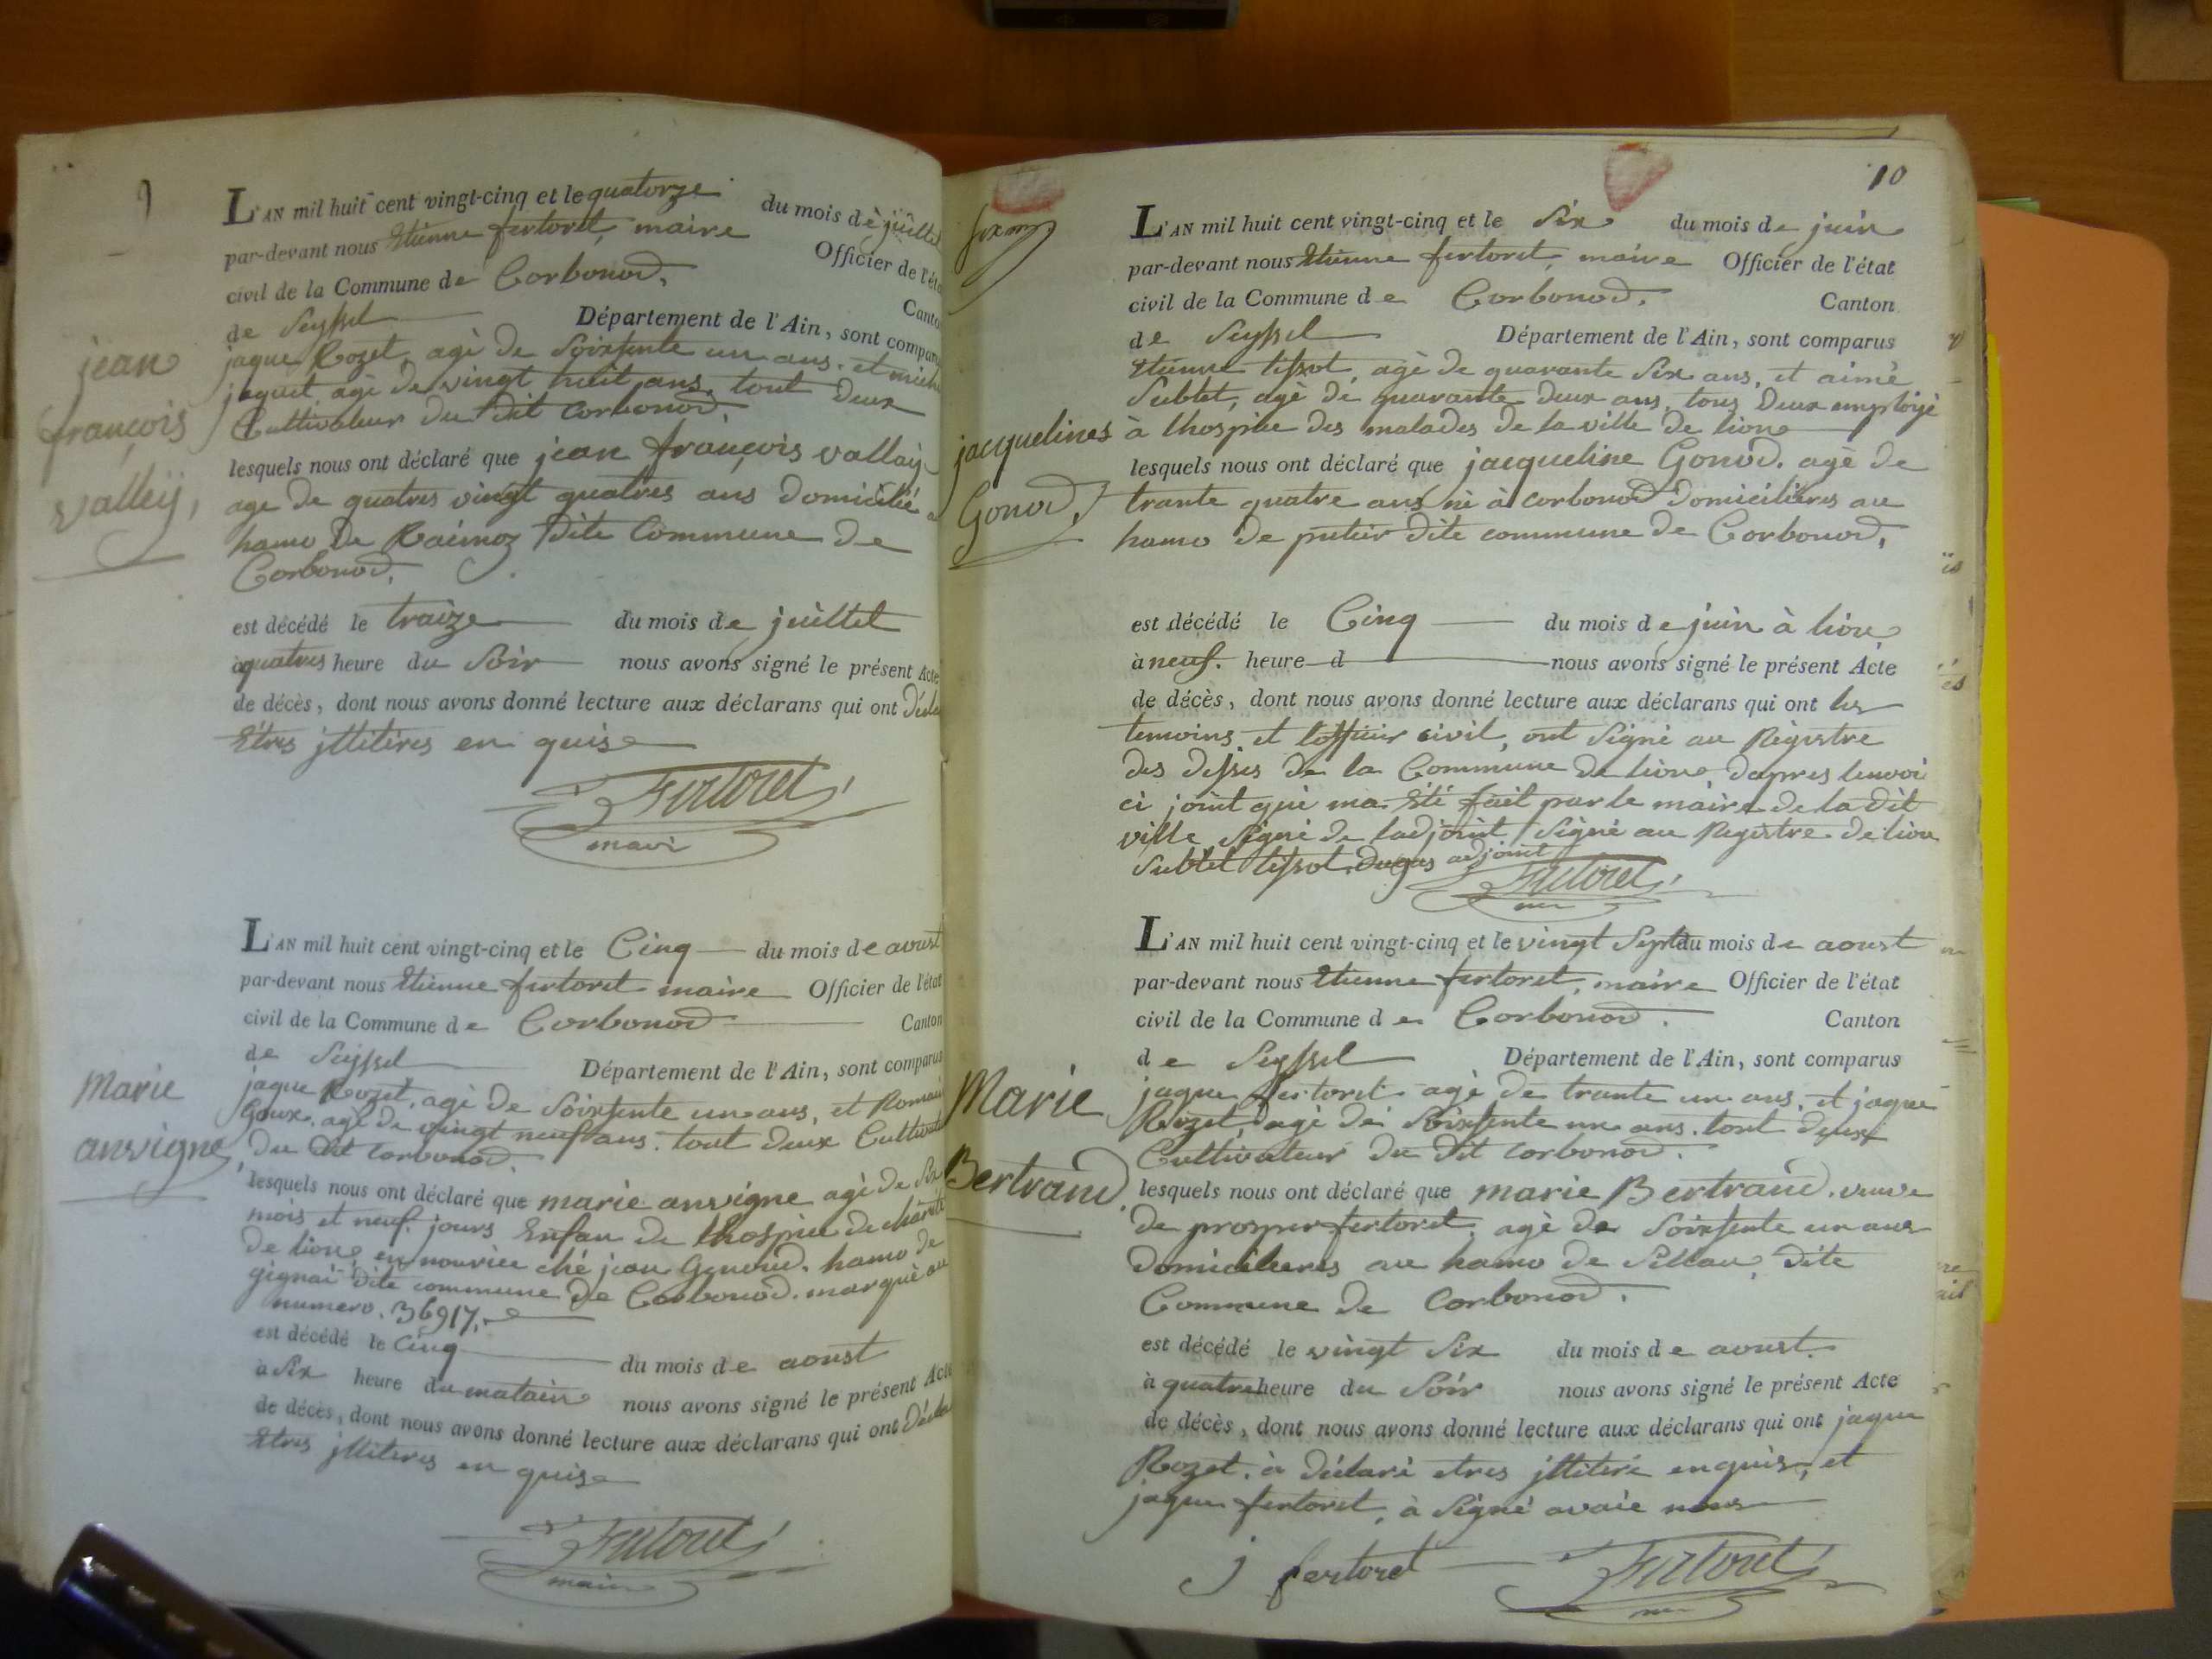 9
jean
françois
valleÿ,
L'AN mil huit cent vingt-cinq et le quatorze du mois de juillet
par-devant nous Etienne fertoret, maire Officier de l'éta
civil de la Commune de Corbonod, Canto
de Seyssel Département de l'Ain, sont compar
jaque Rozet, agè de Soixsente un ans. et mich
jaquet, agè de vingt huit ans, tout deux
Cultivateur du dit corbonod,
lesquels nous ont déclaré que jean françois vallaiy
age de quatres vingt quatres ans domicilié a
hamo de Raimoz dite Commune de
Corbonod,
est décédé le traize du mois de juilltet
à quatres heure du Soir nous avons signé le présent Acte
de décès, dont nous avons donné lecture aux déclarans qui ont décla
Etres jlliteres en quise
Fertoret
mair
Marie
anvigne,
L'AN mil huit cent vingt-cinq et le Cinq du mois de avoust
par-devant nous Etienne fertoret maire Officier de l'état
civil de la Commune de Corbonod Canton
de Seyssel Département de l'Ain, sont comparus
jaque Rozet, agè de Soixsente un ans, et Romain
Goux, agè de vingt neuf ans. tout deux Cultivat
du dit corbonod.
lesquels nous ont déclaré que marie anvigne agè de Six
mois et neuf. jours Enfan de lhospice de charité
de lione en nourice ché jean Genoud. hamo de
gignai dite commune de Corbonod. marquè au
numero. 36917,
est décédé le Cinq du mois de aoust
à Six heure du matain nous avons signé le présent Acte
de décès, dont nous avons donné lecture aux déclarans qui ont décla
Etres jlliteres en quise
Fertoret
maire
10
jacquelines
Gonod,
L'AN mil huit cent vingt-cinq et le Six du mois de juin
par-devant nous Etienne fertoret, maire Officier de l'état
civil de la Commune de Corbonod. Canton
de Seyssel Département de l'Ain, sont comparus
Etienne tissot, agè de quarante Six ans, et aimè
Subtet, agè de quarante deux ans, tous deux employè
à lhospice des malades de la ville de lione
lesquels nous ont déclaré que jacqueline Gonod. agè de
trante quatre ans nè à corbonod domicilieres au
hamo de puteir dite commune de Corbonod,
est décédé le Cinq du mois de juin à lione
à neuf. heure d nous avons signé le présent Acte
de décès, dont nous avons donné lecture aux déclarans qui ont les
temoins et lofficier civil, ont Signè au Règistre
des desses de la Commune de lione dapres lenvoi
ci joint qui ma Eté fait par le maire de la dit
ville Signè de ladjoint / Signè au Registre de lion
Subtet tissot dugas adjoint
Fertoret
Marie
Bertrand,
L'AN mil huit cent vingt-cinq et le vingt Sept du mois de aoust
par-devant nous Etienne fertoret, maire Officier de l'état
civil de la Commune de Corbonod. Canton
de Seyssel Département de l'Ain, sont comparus
jaque fertoret agè de trante un ans, et jaque
Rozet, agè de Soixsente un ans. tout deux
Cultivateur du dit corbonod.
lesquels nous ont déclaré que marie Bertrand. veuve
de prosper fertoret, agè de Soixsente un ans
domicilieres au hamo de Sillau, dite
Commune de Corbonod.
est décédé le vingt Six du mois de avoust.
à quatre heure du Soir nous avons signé le présent Acte
de décès, dont nous avons donné lecture aux déclarans qui ont jaque
Rozet. à déclarè etres jlliterè enquise, et
jaque fertoret, à Signé avaie nous
j fertoret
Fertoret